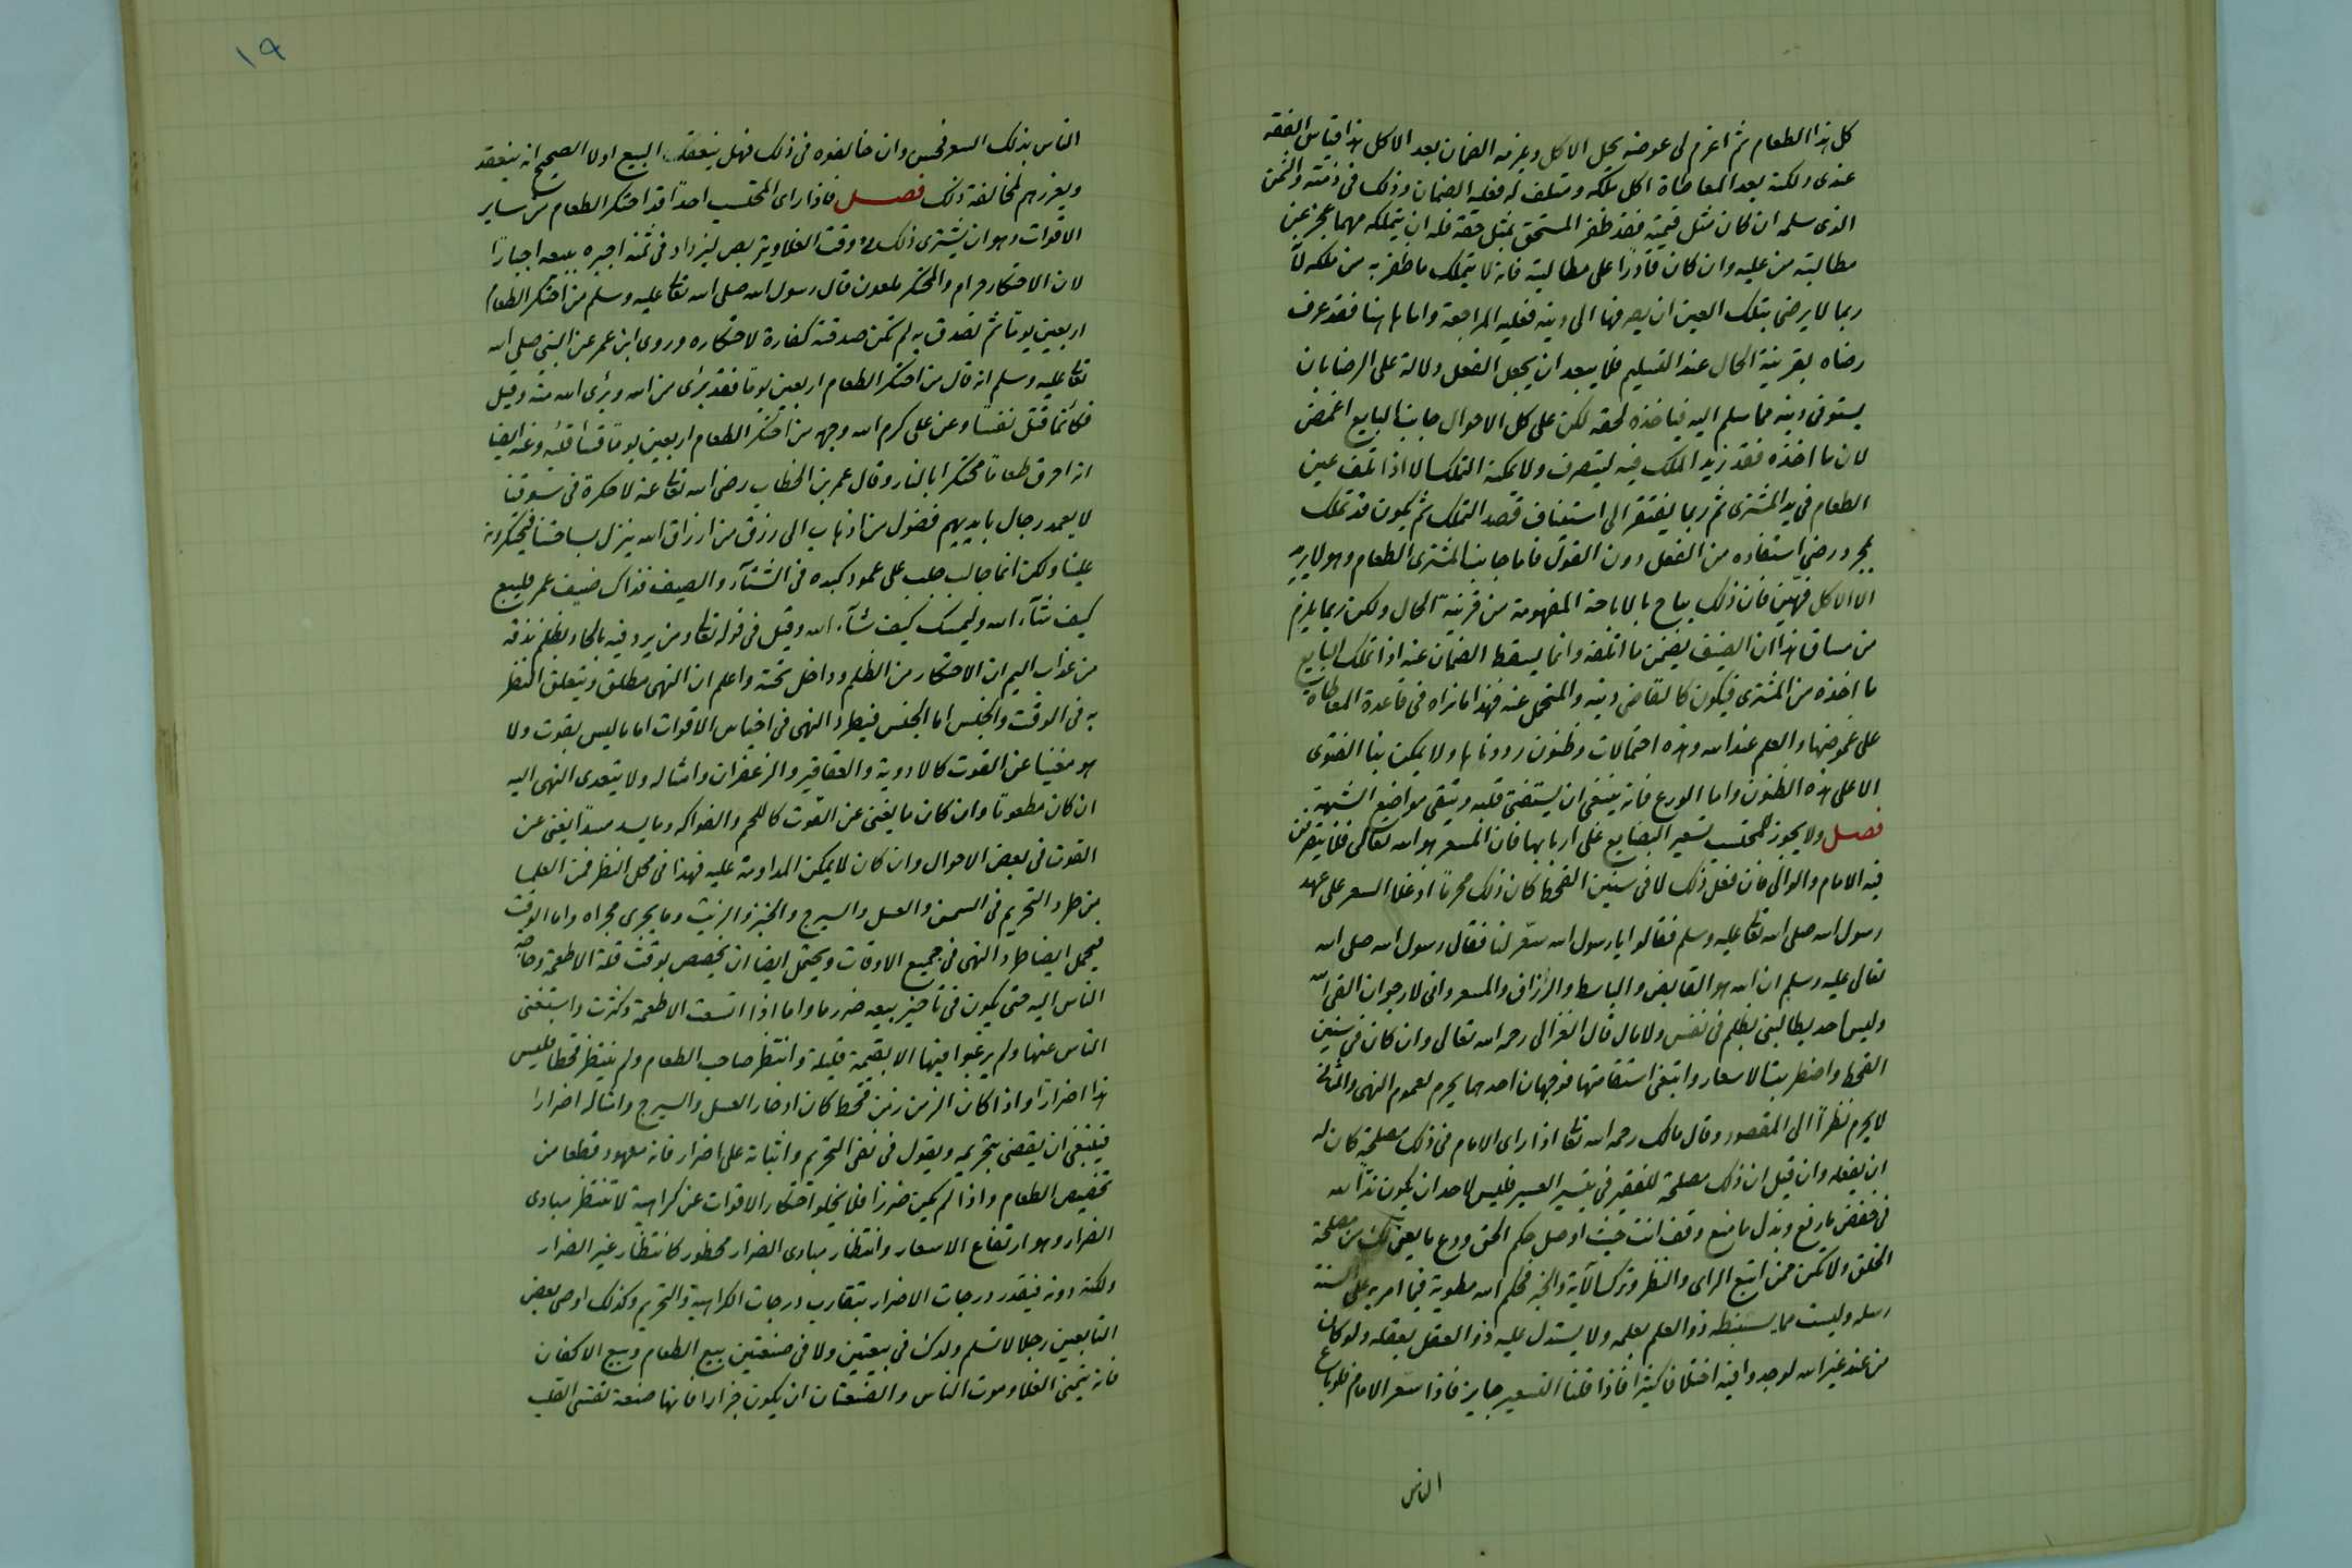 كل هذا الطعام ثم اغرم لى عوضه يحل الاكل ويلزمه الضمان بعد الاكل هذا قياس الفقه
عندى ولكنه بعد المعاطاة اكل ملكه ومتلف له فعليه الضمان وذلك فى ذمته والثمن
الذى سلمه ان كان مثل قيمته فقد ظفر المستحق بمثل حقه فله ان يتملكه مهما عجز عن
مطالبته من عليه وان كان قادرًا على مطالبته فانه لا يتملك ما ظفر به من ملكه لأنه
ربما لا يرضى بتلك العين ان يصرفها الى دينه فعليه المراجعة واما هاهنا فقد عرف
رضاه بقرينة الحال عند التسليم فلا يبعد ان يجعل الفعل دلالة على الرضا بان
يستوفى دينه مما سلم اليه فياخذه لحقه لكن على كل الاحوال جانب البايع اغمض
لان ما اخذه فقد زيد الملك فيه ليتصرف ولا يمكنه التملك الا اذا تلف عين
الطعام فى يد المشترى ثم ربما يفتقر الى استئناف قصد التملك ثم يكون قد تملك
بمجرد رضى استفاده من الفعل دون القول فاما جانب المشترى الطعام وهو لا يريد
الا الاكل فهيّن فان ذلك يباح بالاباحة المفهومة من قرينة الحال ولكن ربما يلزم
من مساق هذا ان الضيف يضمن ما اتلفه وانما يسقط الضمان عنه اذا تملك البايع
ما اخذه من المشترى فيكون كالقاضى دينه والمتحمل عنه فهذا ما نراه فى قاعدة المعاطاة
على غموضها والعلم عند الله وهذه احتمالات وظنون رددناها ولا يمكن بنا الفتوى
الا على هذه الظنون واما الورع فانه ينبغى ان يستفتى قلبه ويتقى مواضع الشبهة.
فصل ولا يجوز للمحتسب تسعير البضايع على اربابها فان المسعر هو الله تعالى فلا يتعرض
فيه الامام والوالى فان فعل ذلك لا فى سنين القحط كان ذلك محرمًا اذ غلا السعر على عهد
رسول الله صلى الله تعا عليه وسلم فقالوا يا رسول الله سعّر لنا فقال رسول الله صلى الله
تعالى عليه وسلم ان الله هو القابض والباسط والرزاق والمسعر وانى لارجو ان القى الله
وليس احد يطالبنى بظلم فى نفس ولا مال قال الغزالى رحمه الله تعالى وان كان فى سنين
القحط واضطربت الاسعار وابتغى استقامتها فوجهان احدهما يحرم لعموم النهى والثانى
لا يحرم نظرًا الى المقصود وقال مالك رحمه الله تعا اذا راى الامام فى ذلك مصلحة كان له
ان يفعله وان قيل ان ذلك مصلحة للفقير فى تيسير العسير فليس لاحد ان يكون ندًّا لله
فى خفض ما رفع وبذل ما منع وقف انت حيث اوصل حكم الحق ودع ما يعن لك من مصلحة
الخلق ولا تكن ممن اتبع الراى والنظر وترك الآية والخبر فحكم الله مطوية فيما امر به على السنة
رسله وليست مما يستنبطه ذو العلم بعلمه ولا يستدل عليه ذو العقل بعقله ولو كان
من عند غير الله لوجدوا فيه اختلافا كثيرا فاذا قلنا التسعير جايز فاذا سعر الامام فلو باع
الناس
١٩
الناس بذلك السعر فحسن وان خالفوه فى ذلك فهل ينعقد البيع او لا الصحيح انه ينعقد
ويعزرهم لمخالفة ذلك فصل فاذا راى المحتسب احدًا قد احتكر الطعام من ساير
الاقوات وهو ان يشترى ذلك وقت الغلا ويتربص ليزداد فى ثمنه اجبره بيعه اجبارًا
لان الاحتكار حرام والمحتكر ملعون قال رسول الله صلى الله تعا عليه وسلم من احتكر الطعام
اربعين يومًا ثم تصدق به لم تكن صدقته كفارة لاحتكاره وروى ابن عمر عن النبى صلى الله
تعا عليه وسلم انه قال من احتكر الطعام اربعين يومًا فقد برئ من الله وبرئ الله منه وقيل
فكانما قتل نفسًا وعن على كرم الله وجهه من احتكر الطعام اربعين يومًا قسا قلبه وعنه ايضا
انه احرق طعامًا محتكرا بالنار وقال عمر بن الخطاب رضى الله تعا عنه لا حكرة فى سوقنا
لا يعمد رجال بايديهم فضول من اذهاب الى رزق من ارزاق الله ينزل بساحتنا فيحتكرونه
علينا ولكن انما جالب جلب على عمود كبده فى الشتآء والصيف فذاك ضيف عمر فليبع
كيف شآء الله وليمسك كيف شآء الله وقيل فى قوله تعا ومن يرد فيه بالحاد بظلم نذقه
من عذاب اليم ان الاحتكار من الظلم وداخل تحته واعلم ان النهى مطلق ويتعلق النظر
به فى الوقت والجنس اما الجنس فيطرد النهى فى اجناس الاقوات اما ما ليس بقوت ولا
هو مغنيا عن القوت كالادوية والعقاقير والزعفران وامثاله ولا يتعدى النهى اليه
ان كان مطعومًا وان كان ما يغنى عن القوت كاللحم والفواكه وما يسد مسدًا يغنى عن
القوت فى بعض الاحوال وان كان لا يمكن المداومة عليه فهذا فى محل النظر فمن العلما
من طرد التحريم فى السمن والعسل والسيرج والجبن والزيت وما يجرى مجراه واما الوقت
فيحمل ايضا طرد النهى فى جميع الاوقات ويحتمل ايضا ان يخصص بوقت قلة الاطعمة وحاجة
الناس اليه حتى يكون فى تاخير بيعه ضرر ما واما اذا اتسعت الاطعمة وكثرت واستغنى
الناس عنها ولم يرغبوا فيها الا بقيمة قليلة وانتظر صاحب الطعام ولم ينتظر قحطا فليس
هذا اضرارًا واذا كان الزمن زمن قحط كان ادخار العسل والسيرج وامثاله اضرارا
فينبغى ان يقضى بتحريمه ويقول فى نفى التحريم واثباته على اضرار فانه معهود قطعا من
تخصيص الطعام واذا لم يكن ضررًا فلا يخلو احتكار الاقوات عن كراهية لا تنتظر مبادى
الضرار وهو ارتفاع الاسعار وانتظار مبادى الضرار محظور كانتظار غير الضرار
ولكنه دونه فيقدر درجات الاضرار يتقارب درجات الكراهية والتحريم وكذلك اوصى بعض
التابعين رجلا لا تسلم ولدك فى بيعتين ولا فى صنعتين بيع الطعام وبيع الاكفان
فانه يتمنى الغلا وموت الناس والصنعتان ان يكون جزارا فانها صنعة تقسى القلب